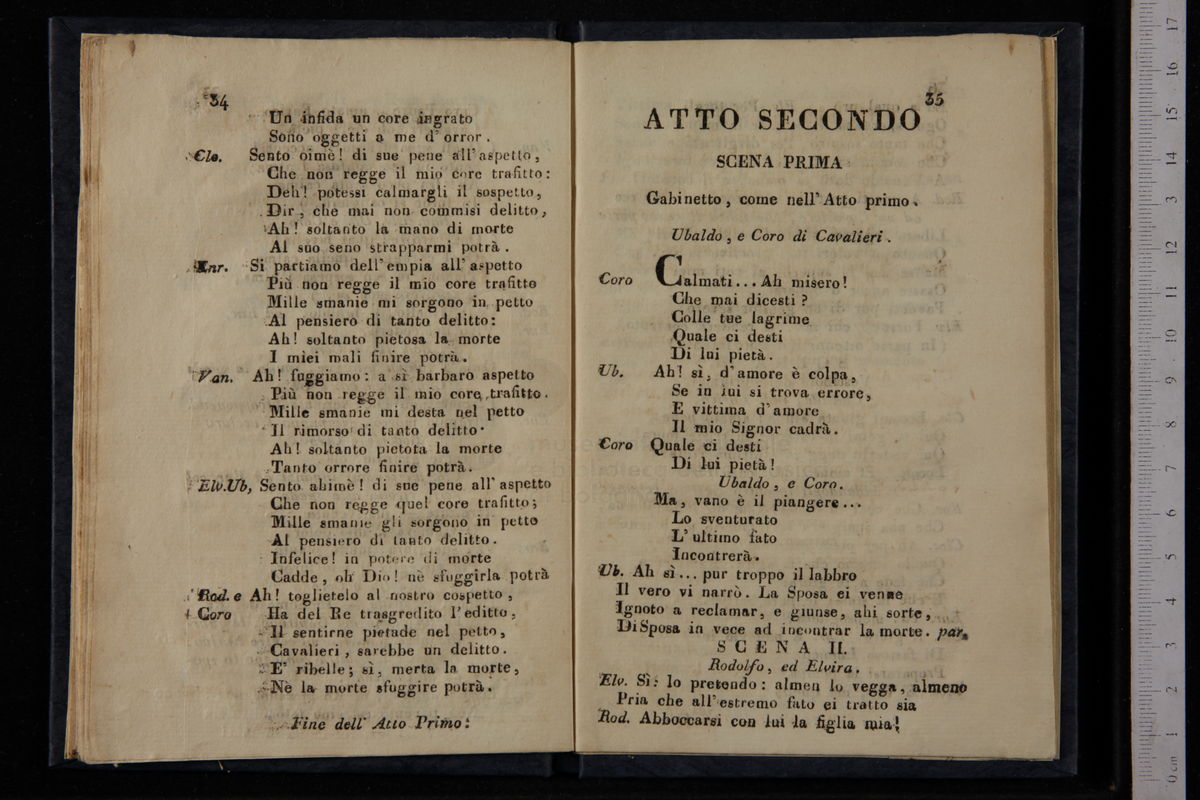 34
Un infida un core ingrato
Sono oggetti a me d'orror.
Cle. Sento oimè! di sue pene all'aspetto,
Che non regge il mio core trafitto:
Deh! potessi calmargli il sospetto,
Dir, che mai non commisi delitto,
Ah! soltanto la mano di morte
Al suo seno strapparmi potrà.
Enr. Si partiamo dell'empia all'aspetto
Più non regge il mio core trafitto
Mille smanie mi sorgono in petto
Al pensiero di tanto delitto:
Ah! soltanto pietosa la morte
I miei mali finire potrà.
Van. Ah! fuggiamo: a sì barbaro aspetto
Più non regge il mio core trafitto.
Mille smanie mi desta nel petto
Il rimorso di tanto delitto
Ah! soltanto pietota la morte
Tanto orrore finire potrà.
Elv.Ub, Sento ahimè! di sue pene all'aspetto
Che non regge quel core trafitto;
Mille smanie gli sorgono in petto
Al pensiero di tanto delitto.
Infelice! in potere di morte
Cadde, oh Dio! nè sfuggirla potrà
Rod. e Ah! toglietelo al nostro cospetto,
Coro Ha del Re trasgredito l'editto,
Il sentirne pietade nel petto,
Cavalieri, sarebbe un delitto.
E' ribelle; sì, merta la morte,
Nè la morte sfuggire potrà.
Fine dell' Atto Primo.
35
ATTO SECONDO
SCENA PRIMA
Gabinetto, come nell'Atto primo.
Ubaldo, e Coro di Cavalieri.
Coro Calmati... Ah misero!
Che mai dicesti?
Colle tue lagrime
Quale ci desti
Di lui pietà.
Ub. Ah! sì, d'amore è colpa,
Se in lui si trova errore,
E vittima d'amore
Il mio Signor cadrà.
Coro Quale ci desti
Di lui pietà!
Ubaldo, e Coro.
Ma, vano è il piangere...
Lo sventurato
L'ultimo fato
Incontrerà.
Ub. Ah sì... pur troppo il labbro
Il vero vi narrò. La Sposa ei venne
Ignoto a reclamar, e giunse, ahi sorte,
Di Sposa in vece ad incontrar la morte. par.
SCENA II.
Rodolfo, ed Elvira.
Elv. Sì: lo pretendo: almen lo vegga, almeno
Pria che all'estremo fato ei tratto sia
Rod. Abboccarsi con lui la figlia mia!
0 cm 1 2 3 4 5 6 7 8 9 10 11 12 13 14 15 16 17